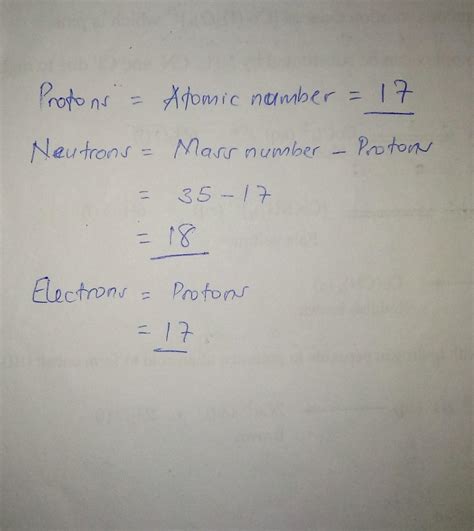 Protons = Atomic number = 17
Neutrons = Mass number - Protons
= 35 - 17
= 18
Electrons = Protons
= 17